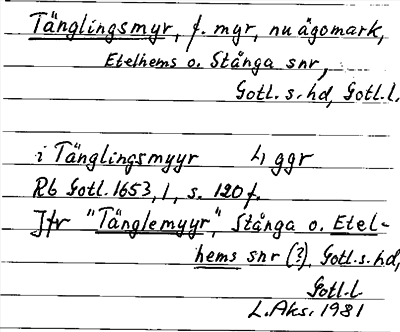 Tänglingsmyr, f. myr, nu ägomark,
Etelhems o. Stånga snr,
Gotl. s. hd, Gotl. l.
i Tänglingsmyyr 4 ggr
Rb Gotl. 1653, 1, s. 120 f.
Jfr "Tänglemyyr", Stånga o. Etel-
hems snr (?), Gotl. s. hd,
Gotl. l.
L. Aks. 1981